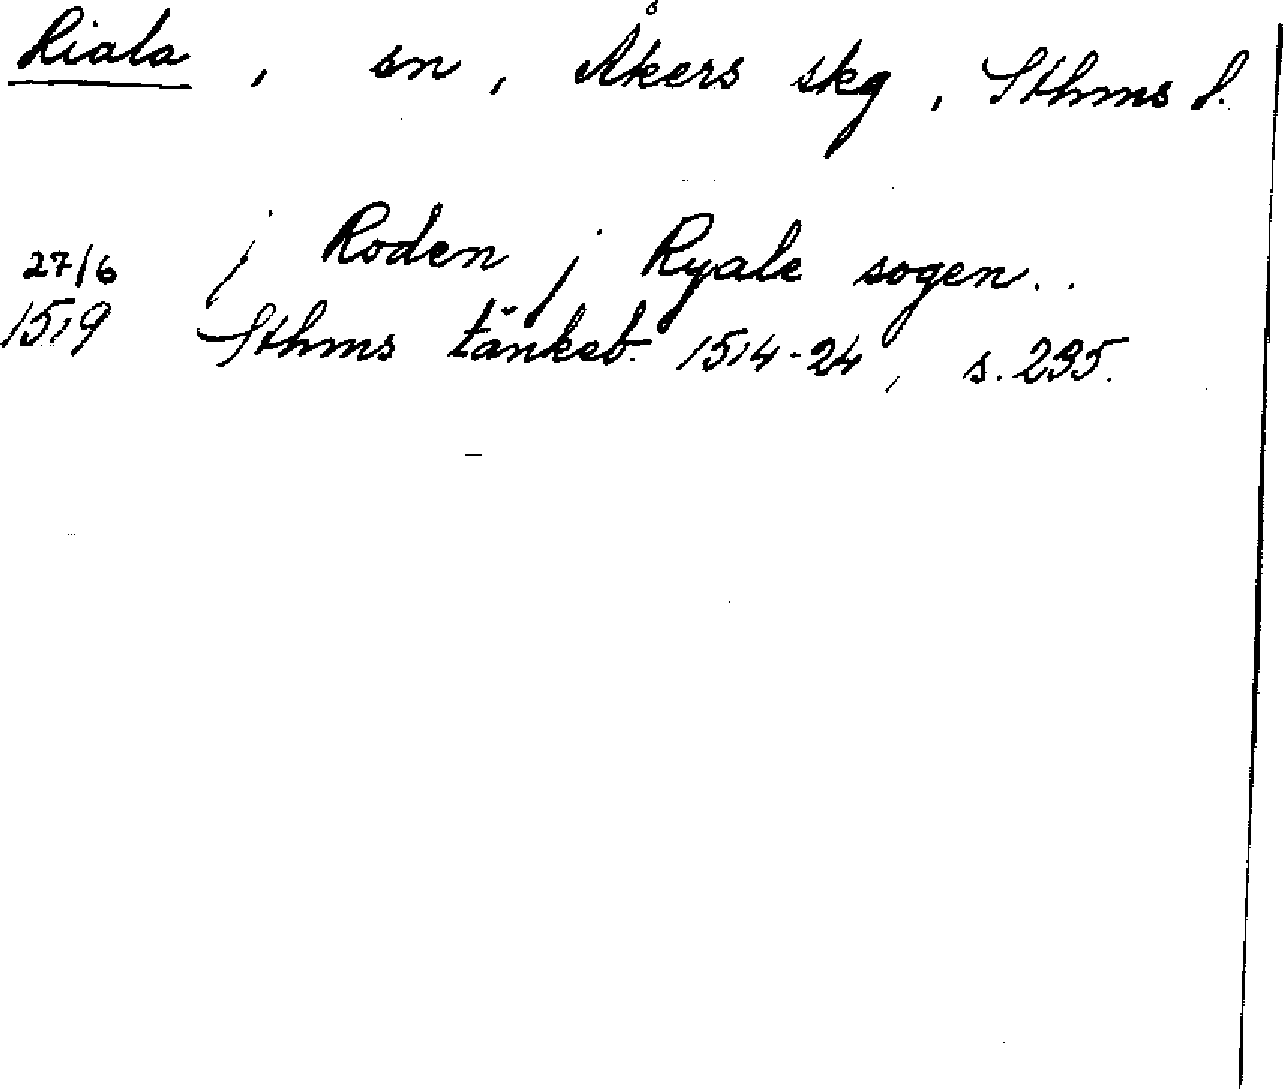 Riala, sn, Åkers skg, Sthms l.
27/6 j Roden j Ryale sogen..
1519 Sthms tänkeb. 1514-24, s. 235.